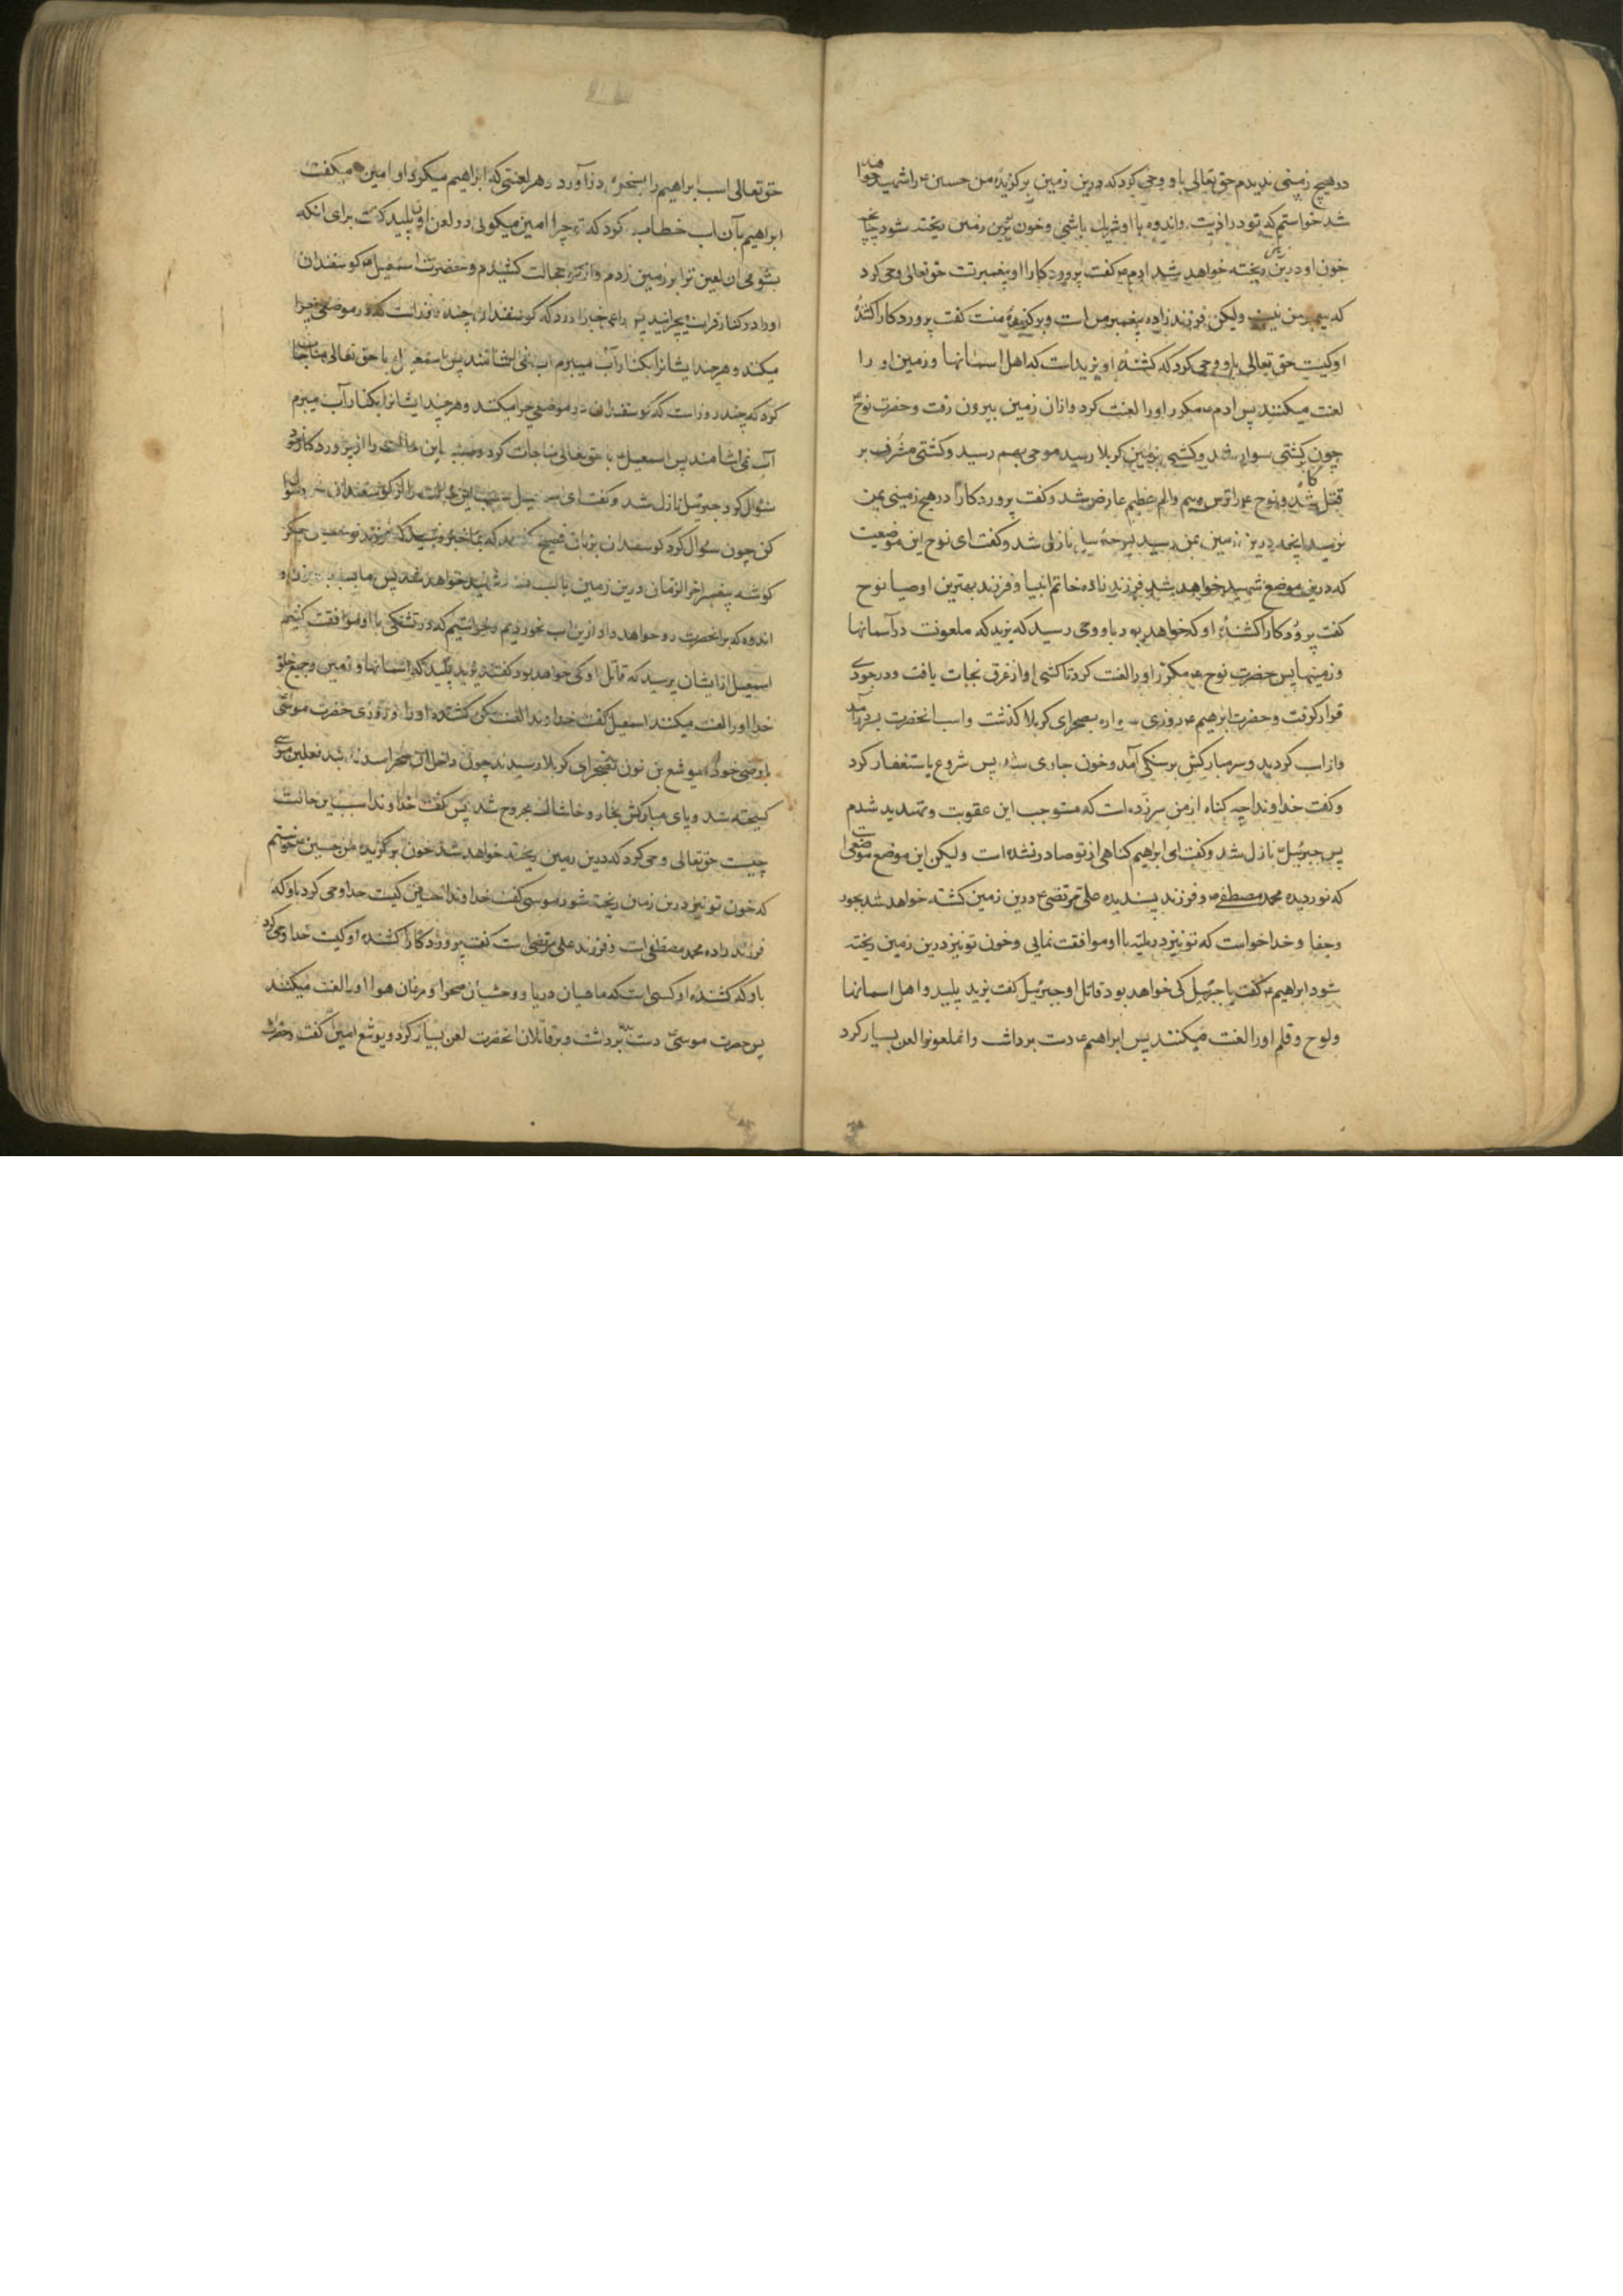 در هیچ زمینی ندیدم حق تعالی باو وحی کرد که درین زمین برکزیدهٔ من حسین ع را شهید خواهند
شد خواستم که تو در اذیت واندوه با او شریك باشی وخون تو برین زمین ریخته شود چنانچه
خون او درین زمین ریخته خواهد شد ادم ع کفت پروردکارا او پیغمبرست حق تعالی وحی کرد
که پیغمبر من نیست ولیکن فرزندزاده پیغمبر من است وبرکزیدهٔ منت کفت پروردکارا کشندهٔ
او کیست حق تعالی باو وحی کرد که کشندهٔ او یزید است که اهل اسمانها وزمین او را
لعنت میکنند پس ادم ع مکرر او را لعنت کرد وازان زمین بیرون رفت وحضرت نوح ع
چون بکشتی سوار شد وکشتی بزمین کربلا رسید موجی بهم رسید وکشتی مشرف بر
شد ونوح ع را ترس وبیم والم عظیم عارض شد وکفت پروردکارا در هیچ زمینی بمن
نرسید انچه درین زمین بمن رسید پس جبرئیل نازل شد وکفت ای نوح این موضعیت
که درین موضع شهید خواهد شد فرزند زاده خاتم انبیا وفرزند بهترین اوصیا نوح
کفت پروردکارا کشندهٔ او که خواهد بود باو وحی رسید که یزید که ملعونت در آسمانها
وزمینها پس حضرت نوح ع مکرر او را لعنت کرد تا کشتی او از غرق نجات یافت ودر جودی
قرار کرفت وحضرت ابرهیم ع روزی سواره بصحرای کربلا کذشت واسب انحضرت بسر درآمد
واز اسب کردید وسر مبارکش بر سنکی آمد وخون جاری شد پس شروع باستغفار کرد
وکفت خداوندا چه کناه از من سرزده است که مستوجب این عقوبت وتهدید شدم
پس جبرئیل نازل شد وکفت ای ابراهیم کناهی از تو صادر نشده است ولیکن این موضع موضعی است
که نور دیده محمد مصطفی ص وفرزند پسندیده علی مرتضی ع درین زمین کشته خواهد شد بجور
وجفا وخدا خواست که تو نیز در بلیه با او موافقت نمایی وخون تو نیز درین زمین ریخته
شود ابراهیم ع کفت یا جبرئیل کی خواهد بود قاتل او جبرئیل کفت یزید پلید واهل اسمانها
ولوح وقلم او را لعنت میکنند پس ابراهیم ع دست برداشت وانملعونرا لعن بسیار کرد
حق تعالی اسب ابراهیم را بسخن درآورد وهر لعنتی که ابراهیم میکرد او امین میکفت
ابراهیم بآن اسب خطاب کرد که تو چرا امین میکوئی در لعن اون پلید کفت برای انکه
بشومی ان لعین ترا بر زمین زدم واز تو خجالت کشیدم وحضرت اسمعیل ع کوسفندان
او را در کنار فرات میچرانید پس راعی خبر آورد که کوسفندان چند روز است که در موضعی چرا
میکند وهرچند ایشانرا بکنار آب میبرم آب نمی اشامند پس اسمعیل با حق تعالی مناجات
کرد که چند روز است که کوسفندان در موضعی چرا میکنند وهرچند ایشانرا بکنار آب میبرم
آب نمی اشامند پس اسمعیل ع با حق تعالی مناجات کرد وسبب این حالت را از پروردکار خود
سئوال کرد جبرئیل نازل شد وکفت ای اسمعیل سبب این حالت را از کوسفندان سؤال
کن چون سئوال کرد کوسفندان بزبان فصیح کفتند که بما خبر رسید که فرزند تو حسین جکر
کوشه پیغمبر اخر الزمان درین زمین با لب تشنه شهید خواهد شد پس ما بسبب حزن و
اندوه که بر انحضرت رو خواهد داد ازین اب نخوردیم وخواستیم که در تشنکی با او موافقت کنیم
اسمعیل از ایشان پرسید که قاتل او کی خواهد بود کفتند یزید پلید که اسمانها وزمین وجمیع خلق
خدا او را لعنت میکنند اسمعیل کفت خداوندا لعنت کن کشندهٔ او را وروزی حضرت موسی
با وصی خود یوشع بن نون بصحرای کربلا رسیدند چون داخل آن صحرا شدند بند نعلین موسی
کسیخته شد وپای مبارکش بخار وخاشاك مجروح شد پس کفت خداوندا سبب این حالت
چیست حق تعالی وحی کرد که درین زمین ریخته خواهد شد خون برکزیده من حسین خواستم
که خون تو نیز درین زمان ریخته شود موسی کفت خداوندا حسین کیست خدا وحی کرد باو که
فرزند زاده محمد مصطفی است وفرزند علی مرتضی است کفت پروردکارا کشنده او کیست خدا وحی کرد
باو که کشندهٔ او کسی است که ماهیان دریا ووحشیان صحرا ومرغان هوا او را لعنت میکنند
پس حضرت موسی دست برداشت وبر قاتلان انحضرت لعن بسیار کرد ویوشع امین کفت وحضرت